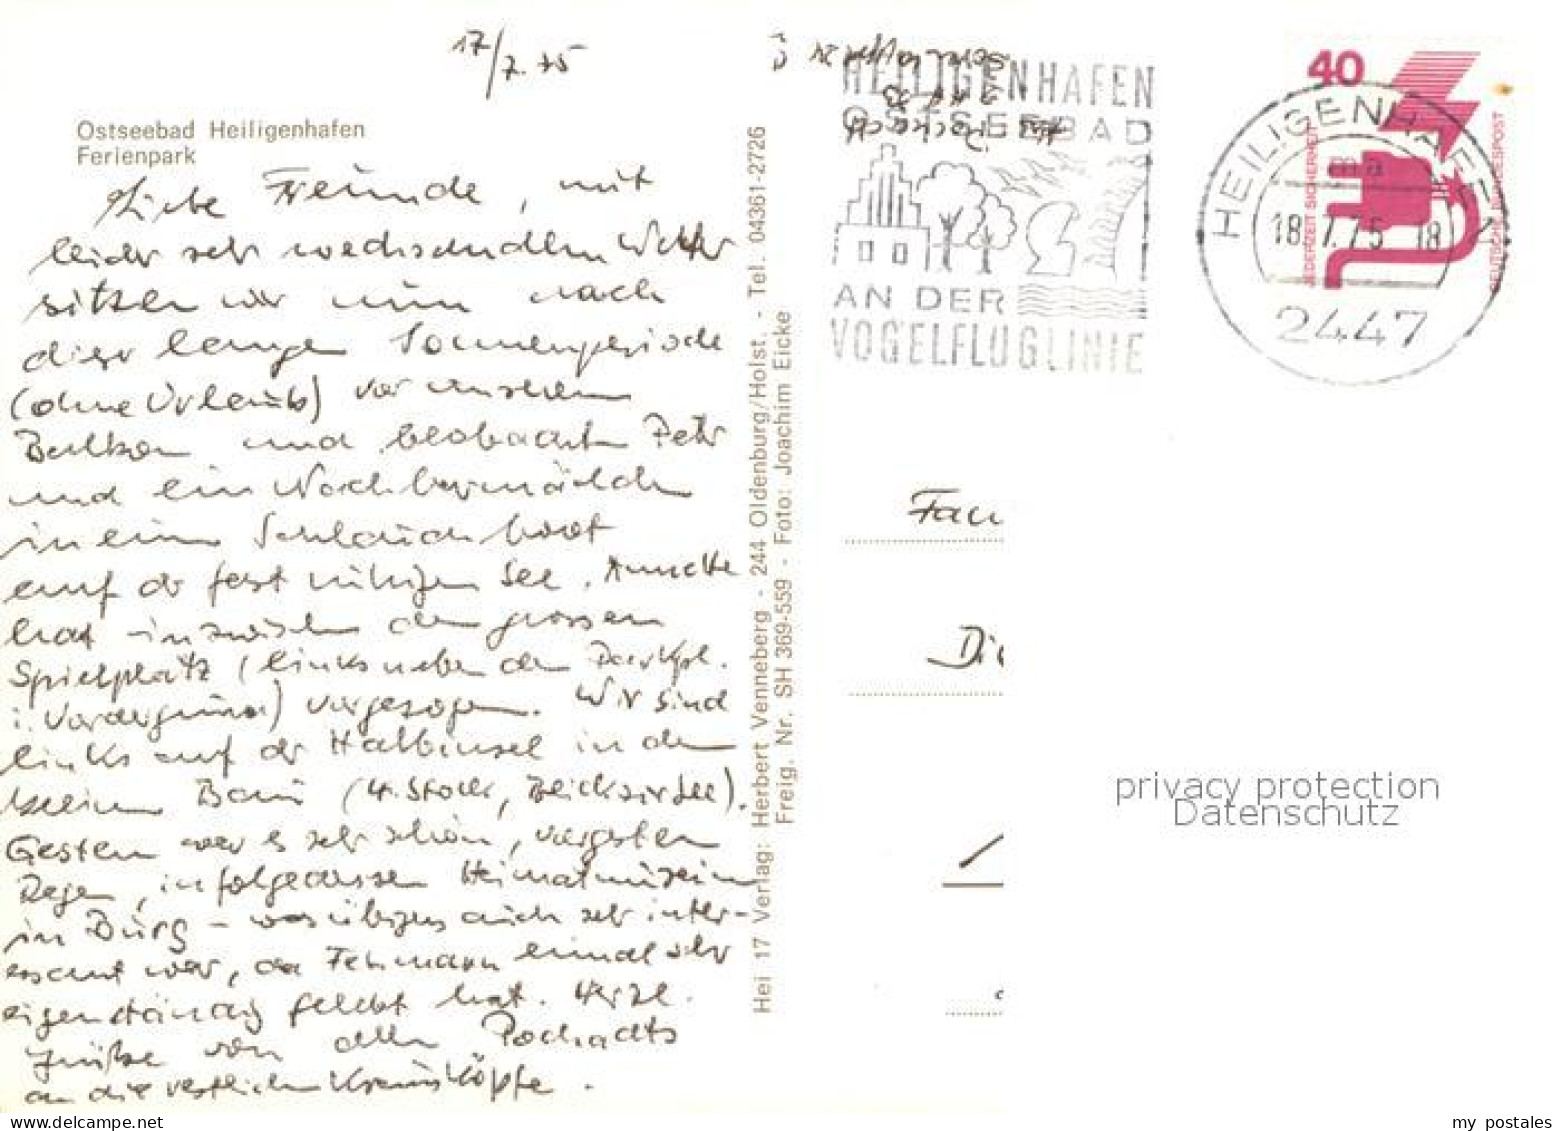 17/7.75
Ostseebad Heiligenhafen
Ferienpark
Liebe Freunde, mit
leider sehr wechselndem Wetter
sitzen wir nun nach
dieser langen Sonnenperiode
(ohne Urlaub) vor unserem
Balkon und beobachten Peter
und ein Nachbarmädchen
in einem Schlauchboot
auf der fast ruhigen See. Annette
hat inzwischen den grossen
Spielplatz (links neben dem Parkpl.
i. Vordergrund) vorgezogen. Wir sind
links auf der Halbinsel in dem
kleinen Bau (4. Stock, Blick zur See).
Gestern war es sehr schön, vorgestern
Regen, infolgedessen Heimatmuseum
in Burg – was übrigens auch sehr inter-
essant war, da Fehmarn einmal sehr
eigenständig gelebt hat. Herzl.
Grüße von allen
an die restlichen
Hei 17 Verlag: Herbert Venneberg - 244 Oldenburg/Holst. - Tel. 04361-2726
Freig. Nr. SH 369-559 - Foto: Joachim Eicke
HEILIGENHAFEN
OSTSEEBAD
AN DER
VOGELFLUGLINIE
40
JEDERZEIT SICHERHEIT
DEUTSCHE BUNDESPOST
HEILIGENHAFEN
ma
18.7.75-18
2447
Fam
Di
privacy protection
Datenschutz
my postales